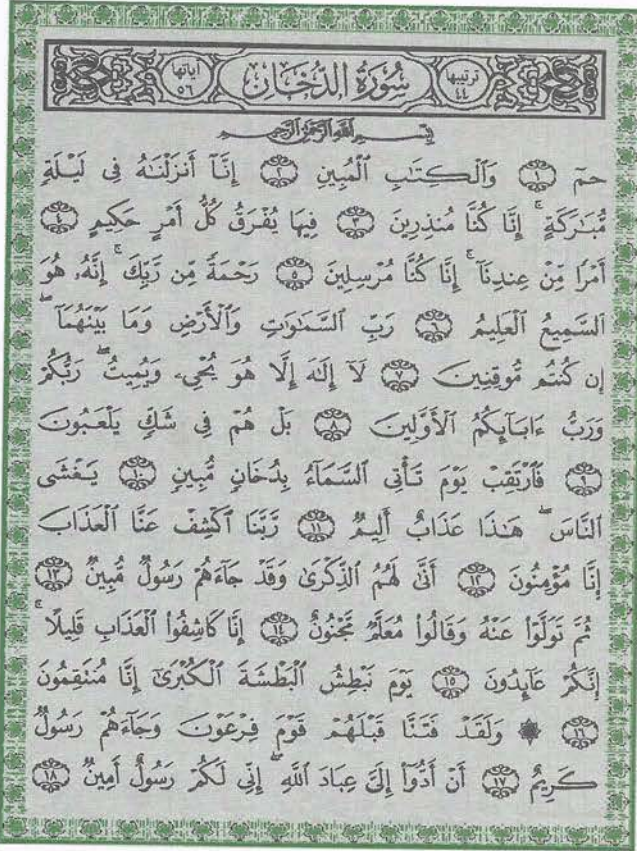 ترتيبها ٤٤ سُورَةُ الدُّخَانِ آياتها ٥٦
بِسْمِ ٱللَّهِ ٱلرَّحْمَٰنِ ٱلرَّحِيمِ
حمٓ ١ وَٱلْكِتَٰبِ ٱلْمُبِينِ ٢ إِنَّآ أَنزَلْنَٰهُ فِى لَيْلَةٍ
مُّبَٰرَكَةٍ ۚ إِنَّا كُنَّا مُنذِرِينَ ٣ فِيهَا يُفْرَقُ كُلُّ أَمْرٍ حَكِيمٍ ٤
أَمْرًا مِّنْ عِندِنَآ ۚ إِنَّا كُنَّا مُرْسِلِينَ ٥ رَحْمَةً مِّن رَّبِّكَ ۚ إِنَّهُۥ هُوَ
ٱلسَّمِيعُ ٱلْعَلِيمُ ٦ رَبِّ ٱلسَّمَٰوَٰتِ وَٱلْأَرْضِ وَمَا بَيْنَهُمَآ ۖ
إِن كُنتُم مُّوقِنِينَ ٧ لَآ إِلَٰهَ إِلَّا هُوَ يُحْىِۦ وَيُمِيتُ ۖ رَبُّكُمْ
وَرَبُّ ءَابَآئِكُمُ ٱلْأَوَّلِينَ ٨ بَلْ هُمْ فِى شَكٍّ يَلْعَبُونَ
٩ فَٱرْتَقِبْ يَوْمَ تَأْتِى ٱلسَّمَآءُ بِدُخَانٍ مُّبِينٍ ١٠ يَغْشَى
ٱلنَّاسَ ۖ هَٰذَا عَذَابٌ أَلِيمٌ ١١ رَّبَّنَا ٱكْشِفْ عَنَّا ٱلْعَذَابَ
إِنَّا مُؤْمِنُونَ ١٢ أَنَّىٰ لَهُمُ ٱلذِّكْرَىٰ وَقَدْ جَآءَهُمْ رَسُولٌ مُّبِينٌ ١٣
ثُمَّ تَوَلَّوْا۟ عَنْهُ وَقَالُوا۟ مُعَلَّمٌ مَّجْنُونٌ ١٤ إِنَّا كَاشِفُوا۟ ٱلْعَذَابِ قَلِيلًا ۚ
إِنَّكُمْ عَآئِدُونَ ١٥ يَوْمَ نَبْطِشُ ٱلْبَطْشَةَ ٱلْكُبْرَىٰٓ إِنَّا مُنتَقِمُونَ
١٦ ۞ وَلَقَدْ فَتَنَّا قَبْلَهُمْ قَوْمَ فِرْعَوْنَ وَجَآءَهُمْ رَسُولٌ
كَرِيمٌ ١٧ أَنْ أَدُّوٓا۟ إِلَىَّ عِبَادَ ٱللَّهِ ۖ إِنِّى لَكُمْ رَسُولٌ أَمِينٌ ١٨